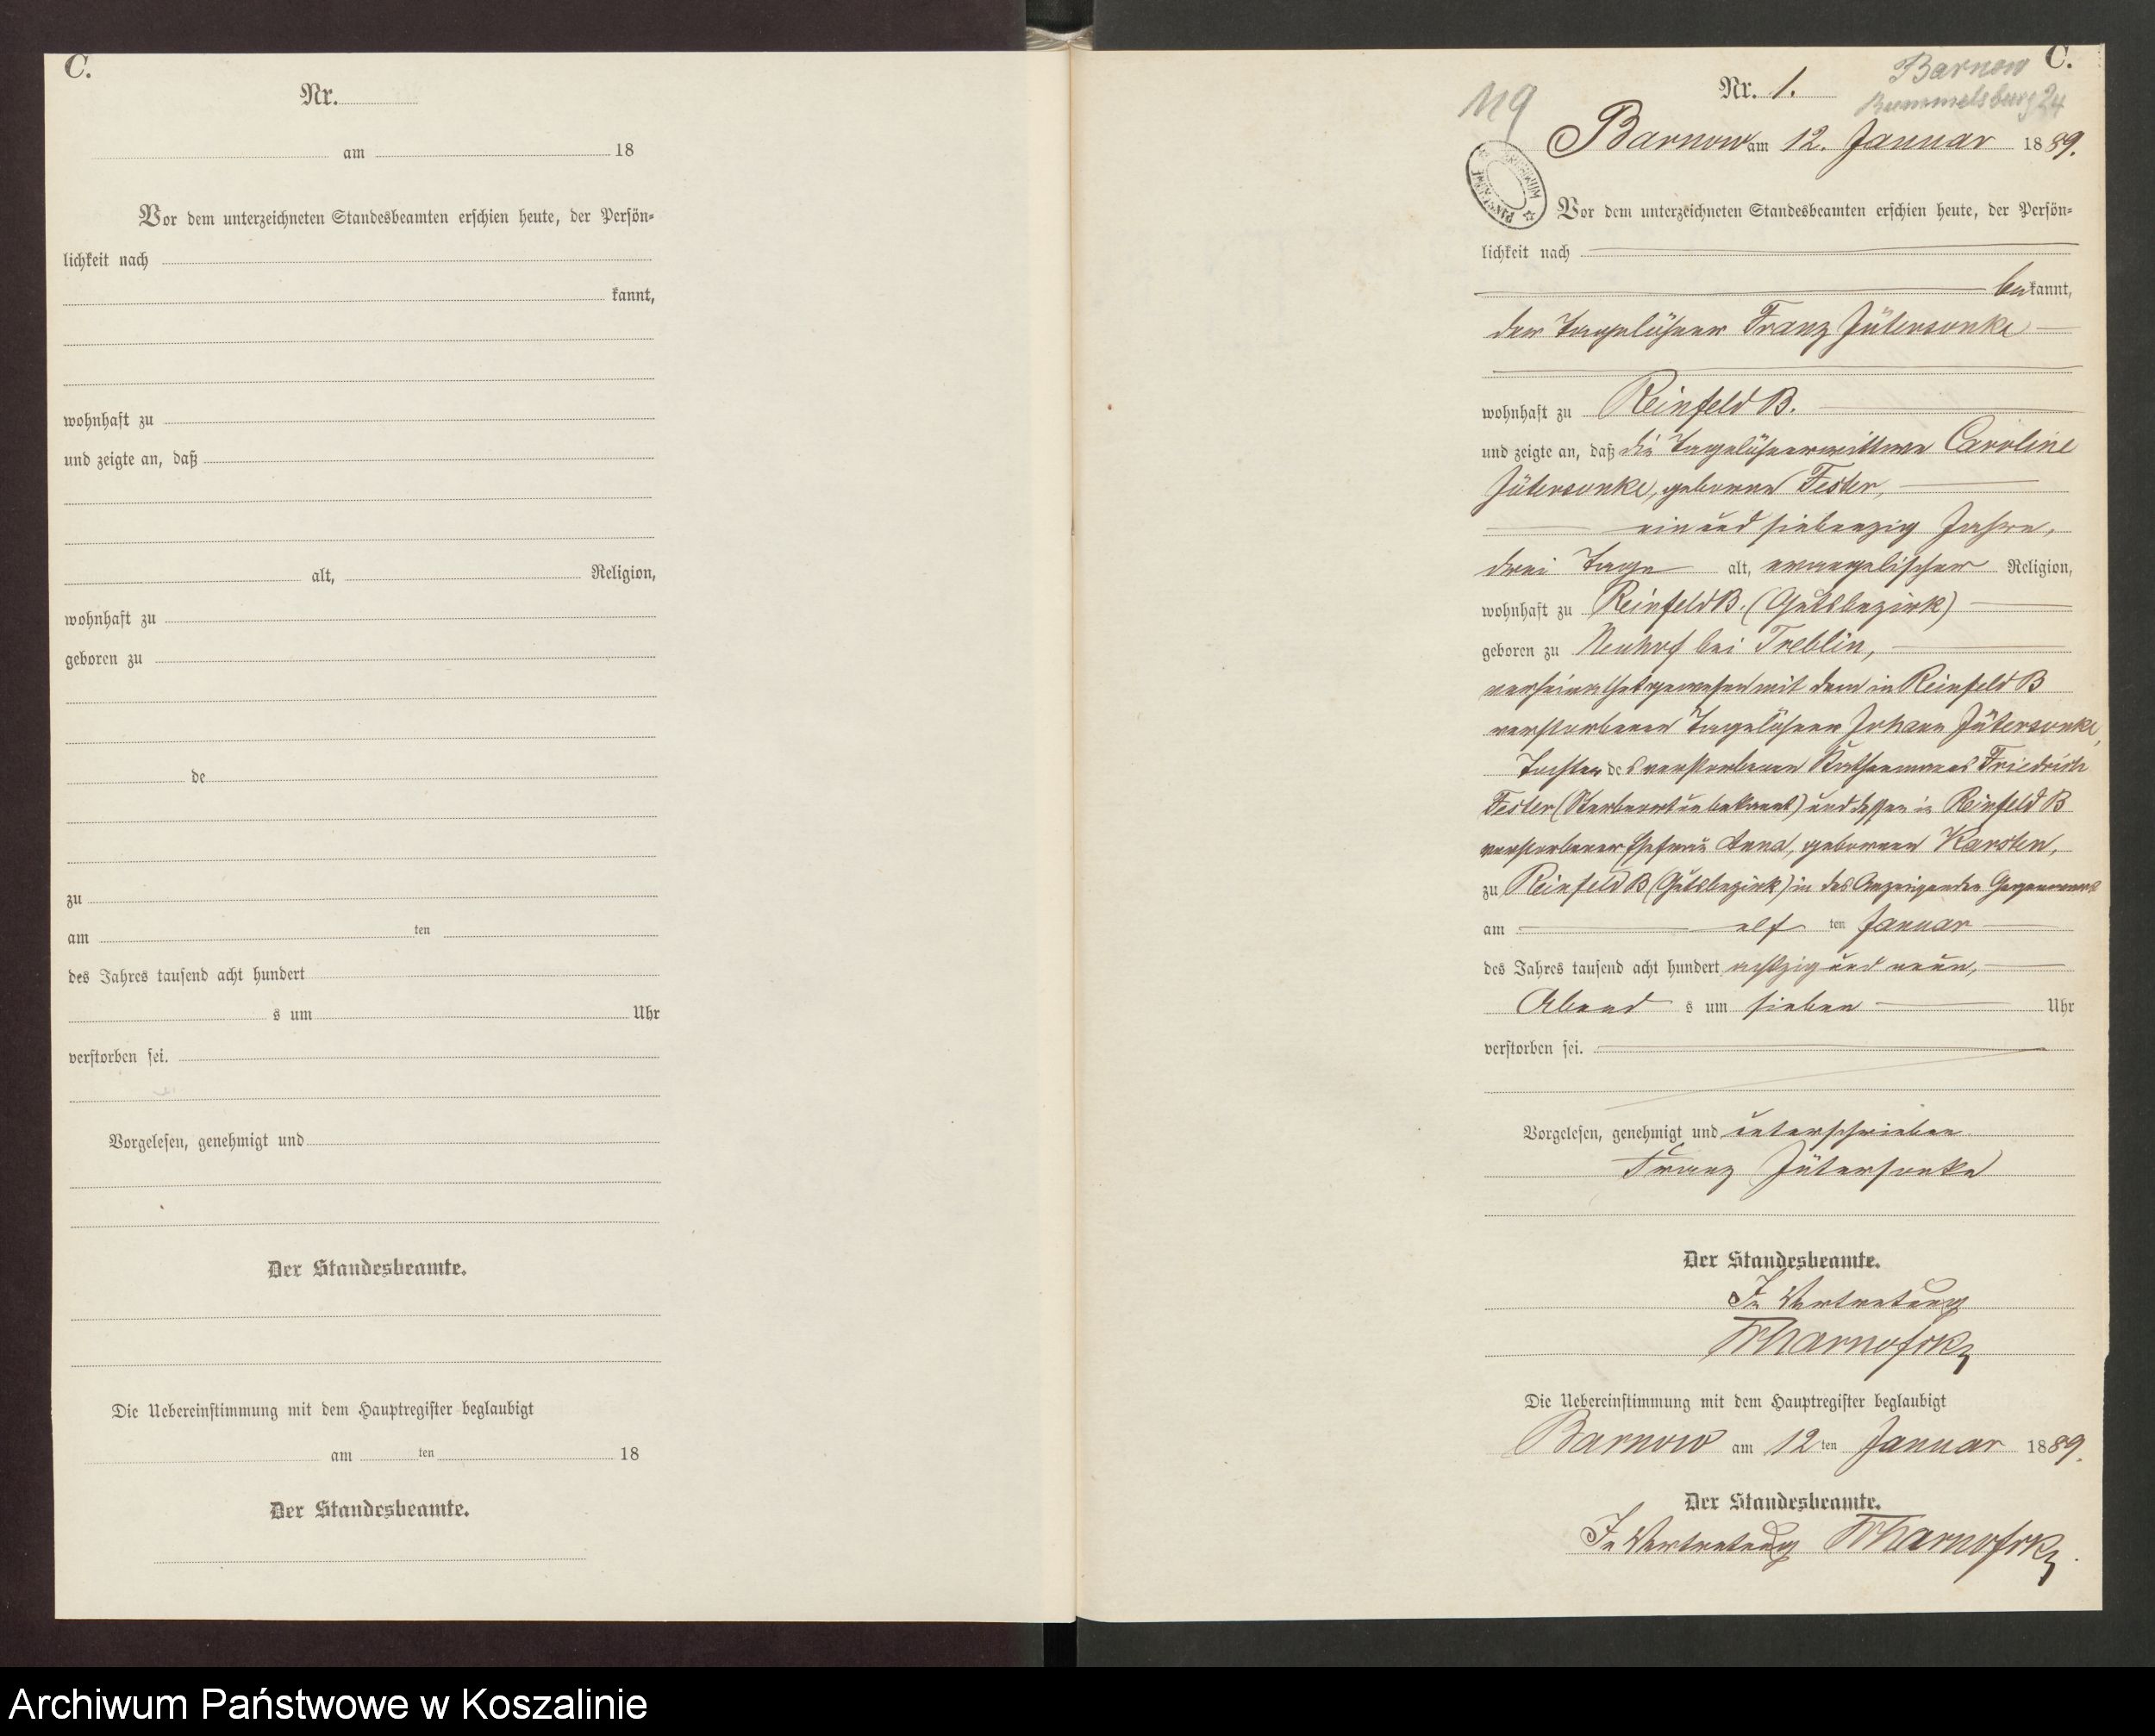 C.
Nr.
am 18
Vor dem unterzeichneten Standesbeamten erschien heute, der Persön=
lichkeit nach
kannt,
wohnhaft zu
und zeigte an, daß
alt, Religion,
wohnhaft zu
geboren zu
de
zu
am ten
des Jahres tausend acht hundert
s um Uhr
verstorben sei.
Vorgelesen, genehmigt und
Der Standesbeamte.
Die Uebereinstimmung mit dem Hauptregister beglaubigt
am ten 18
Der Standesbeamte.
C.
Barnow
Rummelsburg 24
119
Nr. 1.
Barnow am 12. Januar 1889.
Vor dem unterzeichneten Standesbeamten erschien heute, der Persön=
lichkeit nach
bekannt,
der Tagelöhner Franz Jütersonke
wohnhaft zu Reinfeld B.
und zeigte an, daß die Tagelöhnerwittwe Caroline
Jütersonke, geborene Fester,
ein und siebenzig Jahre,
drei Tage alt, evangelischer Religion,
wohnhaft zu Reinfeld B. (Gutsbezirk)
geboren zu Neuhof bei Treblin,
verheirathet gewesen mit dem in Reinfeld B
verstorbenen Tagelöhner Johann Jütersonke,
Tochter des verstorbenen Käthenmannes Friedrich
Fester (Sterbeort unbekannt) und dessen in Reinfeld B
verstorbener Ehefrau Anna, geborenen Karsten,
zu Reinfeld B (Gutsbezirk) in des Anzeigenden Gegenwart
am elf ten Januar
des Jahres tausend acht hundert achtzig und neun,
Abend s um sieben Uhr
verstorben sei.
Vorgelesen, genehmigt und unterschrieben
Franz Jütersonke
Der Standesbeamte.
In Vertretung
Die Uebereinstimmung mit dem Hauptregister beglaubigt
Barnow am 12 ten Januar 1889.
Der Standesbeamte.
In Vertretung
Archiwum Państwowe w Koszalinie